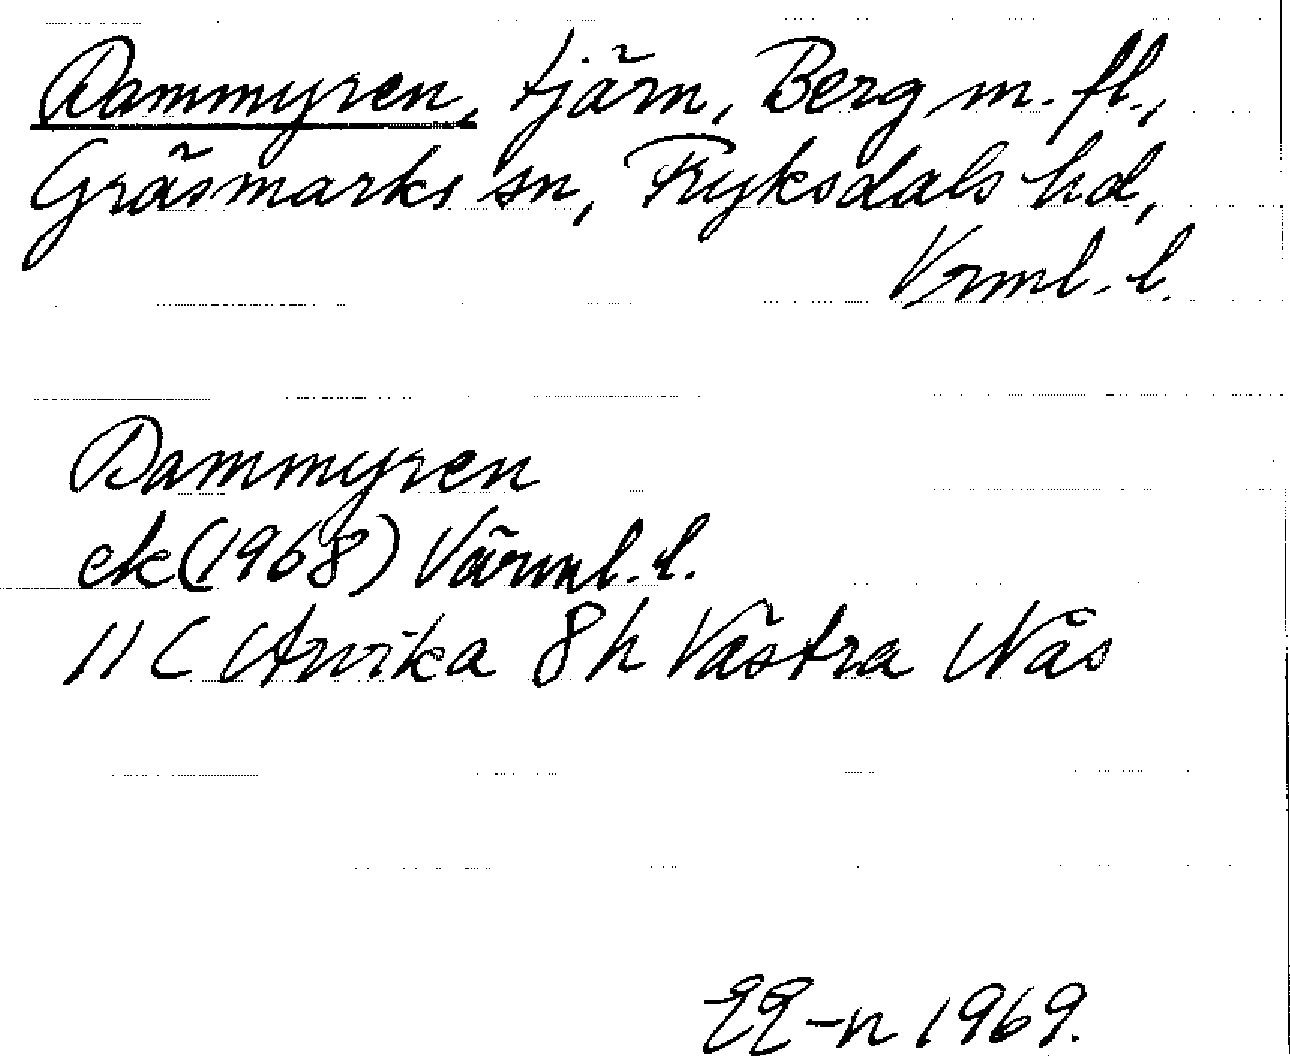 Dammyren, tjärn, Berg m. fl.,
Gräsmarks sn, Fryksdals hd,
Vrml. l.
Dammyren
ek (1968) Värml. l.
11 C Arvika 8h Västra Näs
EE-n 1969.